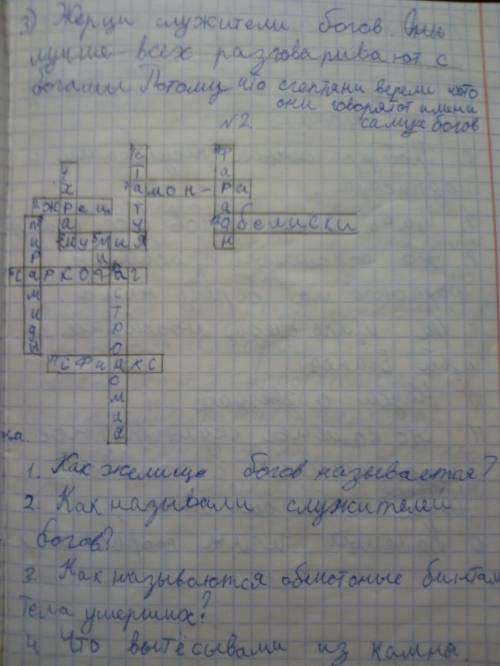 3) Жерци служители богов Они
лучше всех разговаривают с
богами Потому что египтяни верели что
они говорят от имени
самих богов
№2.
храм
статуя
фараон
амон-ра
жрец
обелиски
мумия
пирамиды
миф
саркофаг
астрономия
сфинкс
на.
1. Как желище богов называется?
2. Как называли служителей
богов?
3. Как называются обмотоные бинтам
тела умерших?
4. Что вытёсывами из камны.